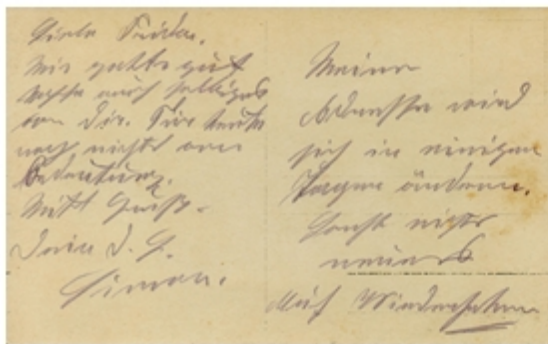 Liebe Frida.
Mir geht es gut
hoffe auch selbiges
von Dir. Für heute
noch nichts von
Bedeutung.
Mit Gruß.
Dein
Simon.
Meine
Adresse wird
sich in einigen
Tagen ändern.
Sonst nichts
neues
Auf Wiedersehen